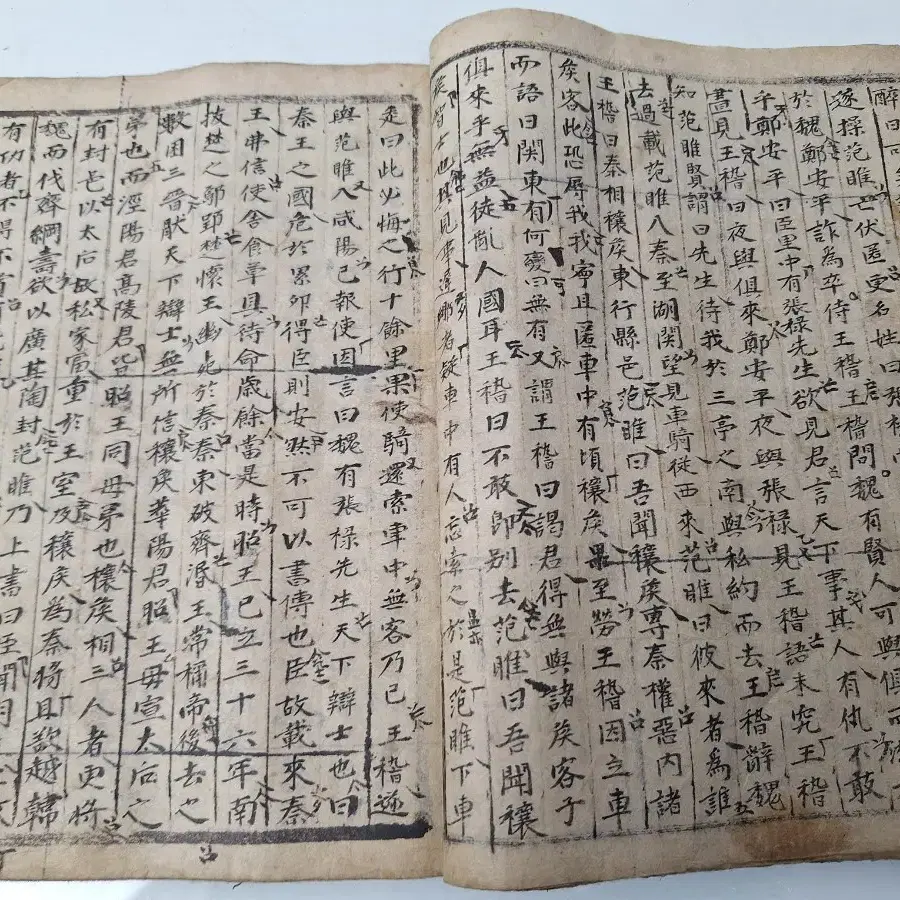 醉曰可
遂操范睢亡伏匿更名姓曰張祿
於魏鄭安平詐為卒侍王稽王稽問魏有賢人可與俱西
乎鄭安平曰臣里中有張祿先生欲見君言天下事其人有仇不敢
晝見王稽曰夜與俱來鄭安平夜與張祿見王稽語未究王稽
知范睢賢謂曰先生待我於三亭之南與私約而去王稽辭魏
去過載范睢入秦至湖関望見車騎從西來范睢曰彼來者為誰
王稽曰秦相穰侯東行縣邑范睢曰吾聞穰侯專秦權惡內諸
侯客此恐辱我我寧且匿車中有頃穰侯果至勞王稽因立車
而語曰関東有何變曰無有又謂王稽曰謁君得無與諸侯客子
俱來乎無益徒亂人國耳王稽曰不敢即別去范睢曰吾聞穰
侯智士也其見事遲鄉者疑車中有人忘索之於是范睢下車
走曰此必悔之行十餘里果使騎還索車中無客乃已王稽遂
與范睢入咸陽已報使因言曰魏有張祿先生天下辯士也曰
秦王之國危於累卵得臣則安然不可以書傳也臣故載來秦
王弗信使舍食草具待命歲餘當是時昭王已立三十六年南
拔楚之鄢郢楚懷王幽死於秦秦東破齊湣王常稱帝後去之
數困三晉厭天下辯士無所信穰侯華陽君昭王母宣太后之
弟也而涇陽君高陵君皆昭王同母弟也穰侯相三人者更將
有封邑以太后故私家富重於王室及穰侯為秦將且欲越韓
魏而伐齊綱壽欲以廣其陶封范睢乃上書曰臣聞明
有功者不得不賞